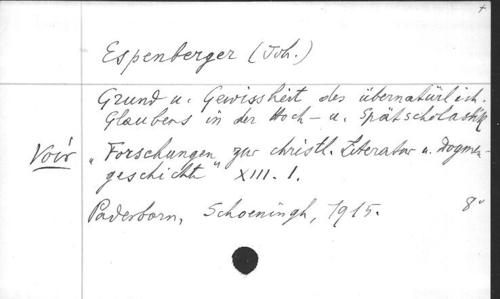 Espenberger (Joh.)
Grund u. Gewissheit des übernatürlich.
Glaubens in der Hoch- u. Spätscholastik
Voir „Forschungen" zur christl. Literatur u. Dogmen-
geschichte XIII. 1.
Paderborn, Schoeningh, 1915. 8°